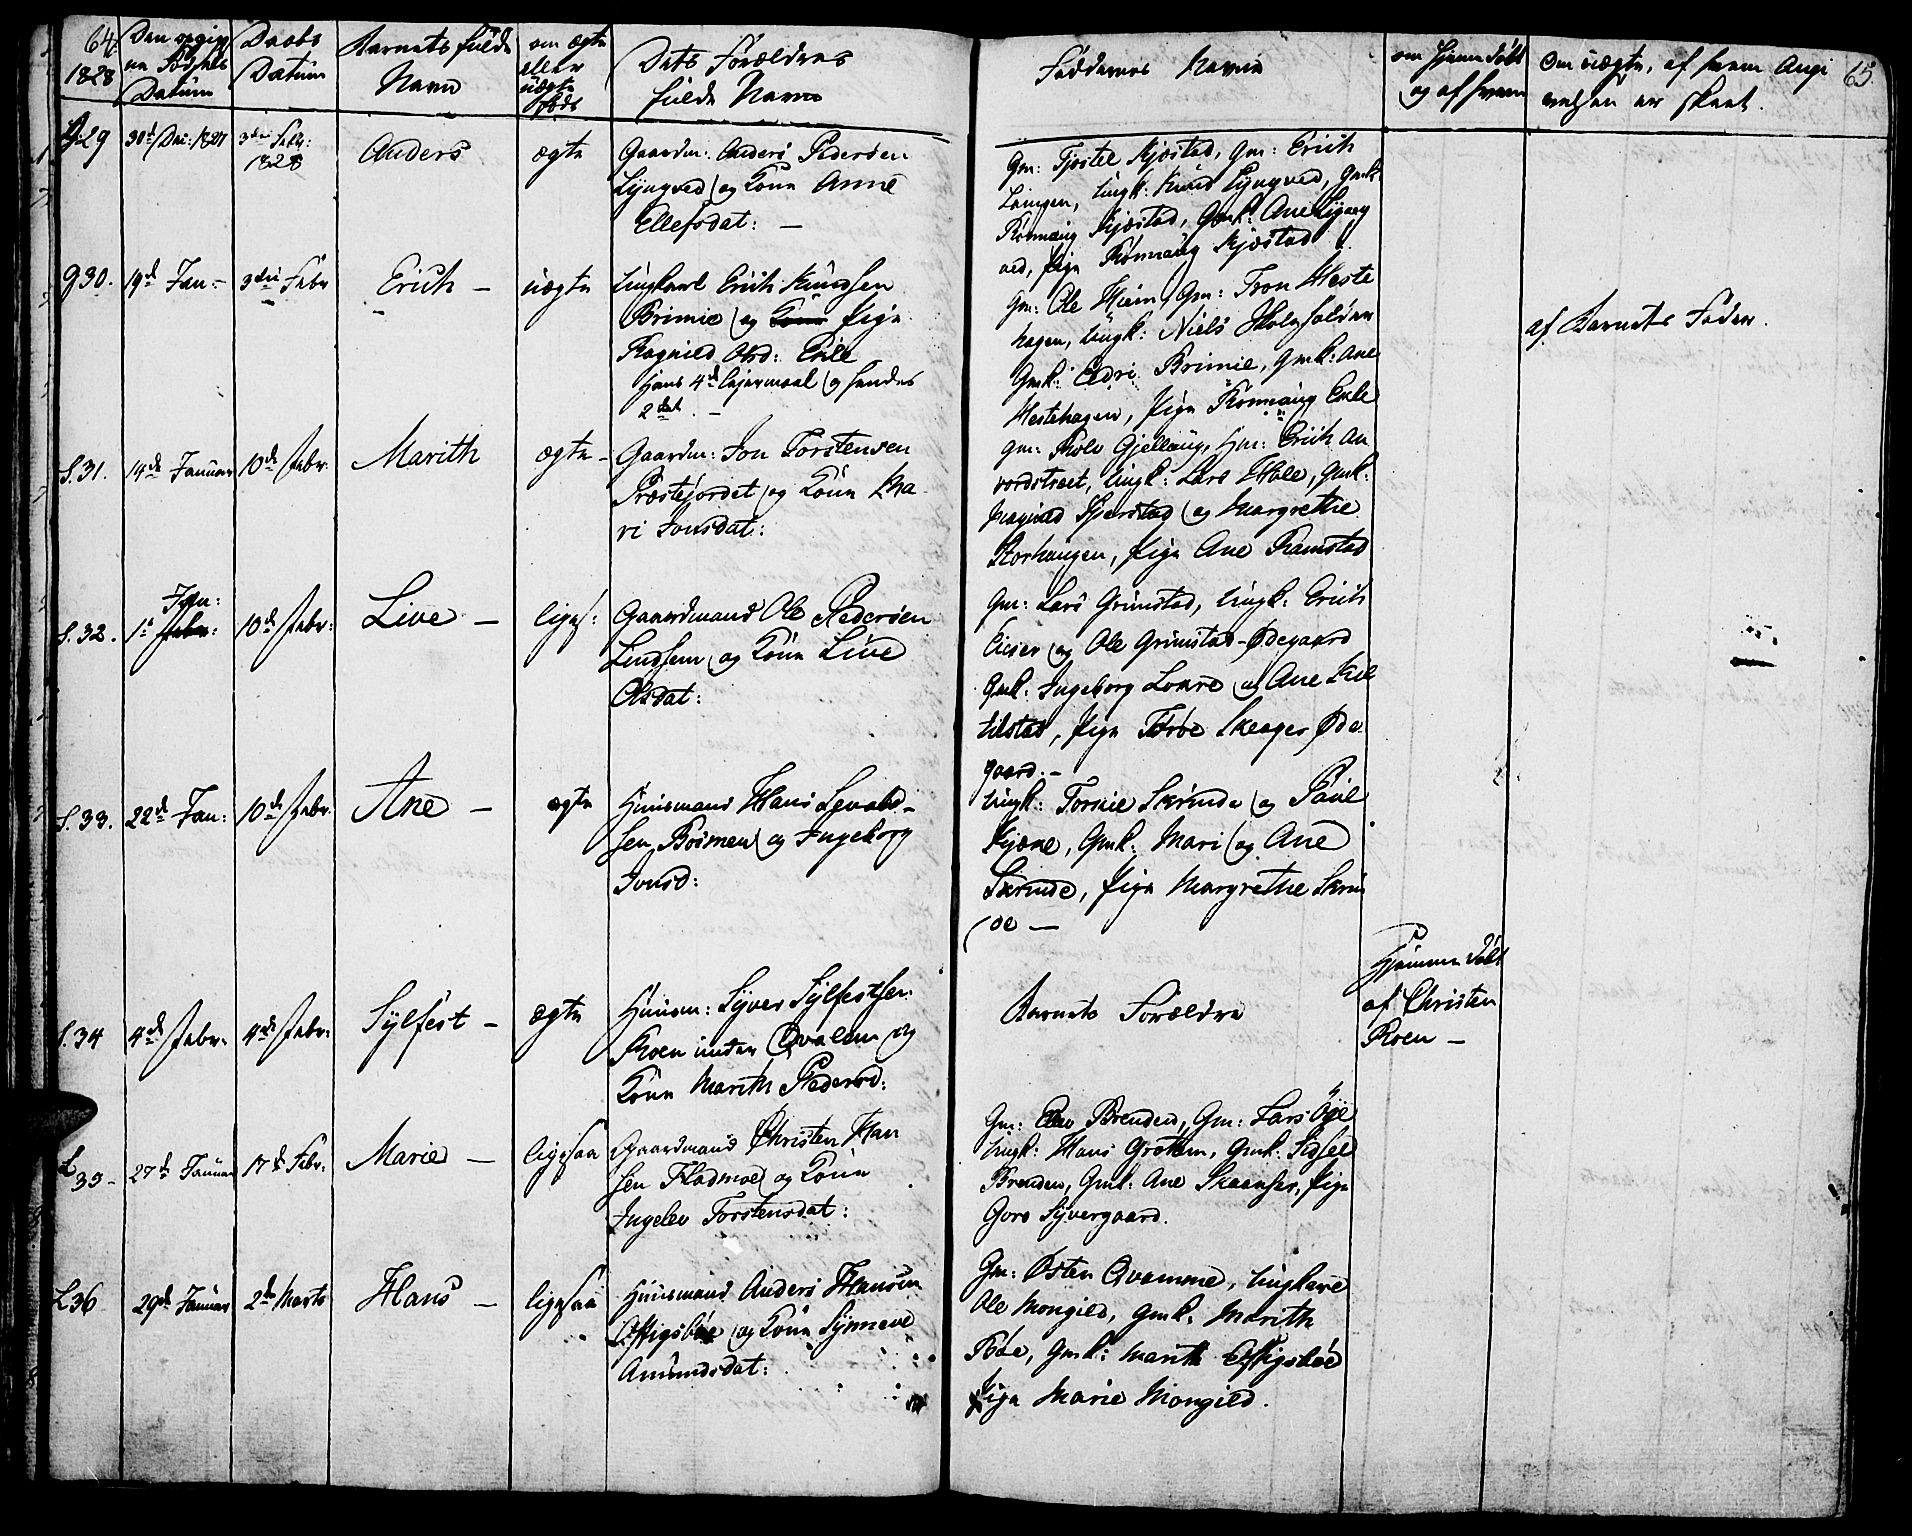 64.
1828
Den opgiv
ne Fødsels
Datum
Daabs
Datum
Barnets fulde
Navn
om ægte
eller
uægte
født
Dets Forældres
fulde Navn
Faddernes Navne
om hjemmedøbt
og af hvem
Om uægte, af hvem Angi
velsen er skeet.
65.
29
30d Dec: 1827
3die Febr:
1828
Anders
ægte
Gaardm: Anders Pedersen
Lyngved og Kone Anne
Ellefsdat: —
Gm: Tjøstel Kjæstad, Gm: Erich
Loingen, Ungk: Knud Lyngved, Gmk:
Rønnaug Kjæstad, Gmk: Ane Lyng
ved, Pige Rønnaug Kjæstad
g30.
19d Jan: -
3die Febr
Erich —
uægte
Ungkarl Erich Knudsen
Brimie og Kone Pige
Ragnild Olsd: Exle
hans 4d Lejermaal og hendes
2det. —
Gm: Ole Hjem, Gm: Tron Heste
hagen, Ungk: Niels Holefolden
Gmk: Eldri Brimie, Gmk: Ane
Hestehagen, Pige Rønnaug Exle
af Barnets Fader.
S.31.
14de Januar
10de Febr:
Marith
ægte -
Gaardm: Jon Torstensen
Præstejordet og Kone Ma
ri Jonsdat:
Gm: Tholv Gjellaug, Hm: Erich An
vordstræet, Ungk: Lars Hole, Gmk:
Magnild Sperstad og Margrethe
Storhaugen, Pige Ane Ramstad
S.32.
Jan:
1t Febr:
10de Febr:
Live —
liges:
Gaardmand Ole Pedersen
Lindsem og Kone Live
Olsdat:
Gm: Lars Grimstad, Ungk: Erich
og Ole Grimstad-Ødegaard
Gmk: Ingeborg Lonre og Ane Kil
tilstad, Pige Thrøe Skeager Øde
gaard. —
S.33.
22de Jan:
10de Febr:
Ane —
ægte
Huusmand Hans Syvald-
sen Bøsmen og Ingeborg
Jonsd:
Ungk: Tormie Skrinde og Poul
Kjæne, Gmk: Mari og Ane
Skrinde, Pige Margrethe Skrin
de —
S.34
4de Febr:
4de Febr:
Sylfest —
ægte
Huusm: Syver Sylfestsen
Roen under Qvalem og
Kone Marith Pedersd:
Barnets Forældre
Hjemmedøbt
af Christen
Roen —
L 35-
27de Januar
17de Febr:
Marie —
ligesaa
Gaardmand Christen Han
sen Fladmoe og Kone
Ingelev Torstensdat:
Gm: Elev Brenden, Gm: Lars Øye
Ungk: Hans Grottem, Gmk: Sidsel
Brenden, Gmk: Ane Skaanser, Pige
Goro Syvergaard.
L36
29de Januar
2de Marts
Hans —
ligesaa
Huusmand Anders Hansen
Offigsbøe og Kone Synneve
Amundsdat:
Gm: Østen Qvamme, Ungkarl
Ole Mongild, Gmk: Marith
Bøe, Gmk: Marith Offigsbøe
Pige Marie Mongild.